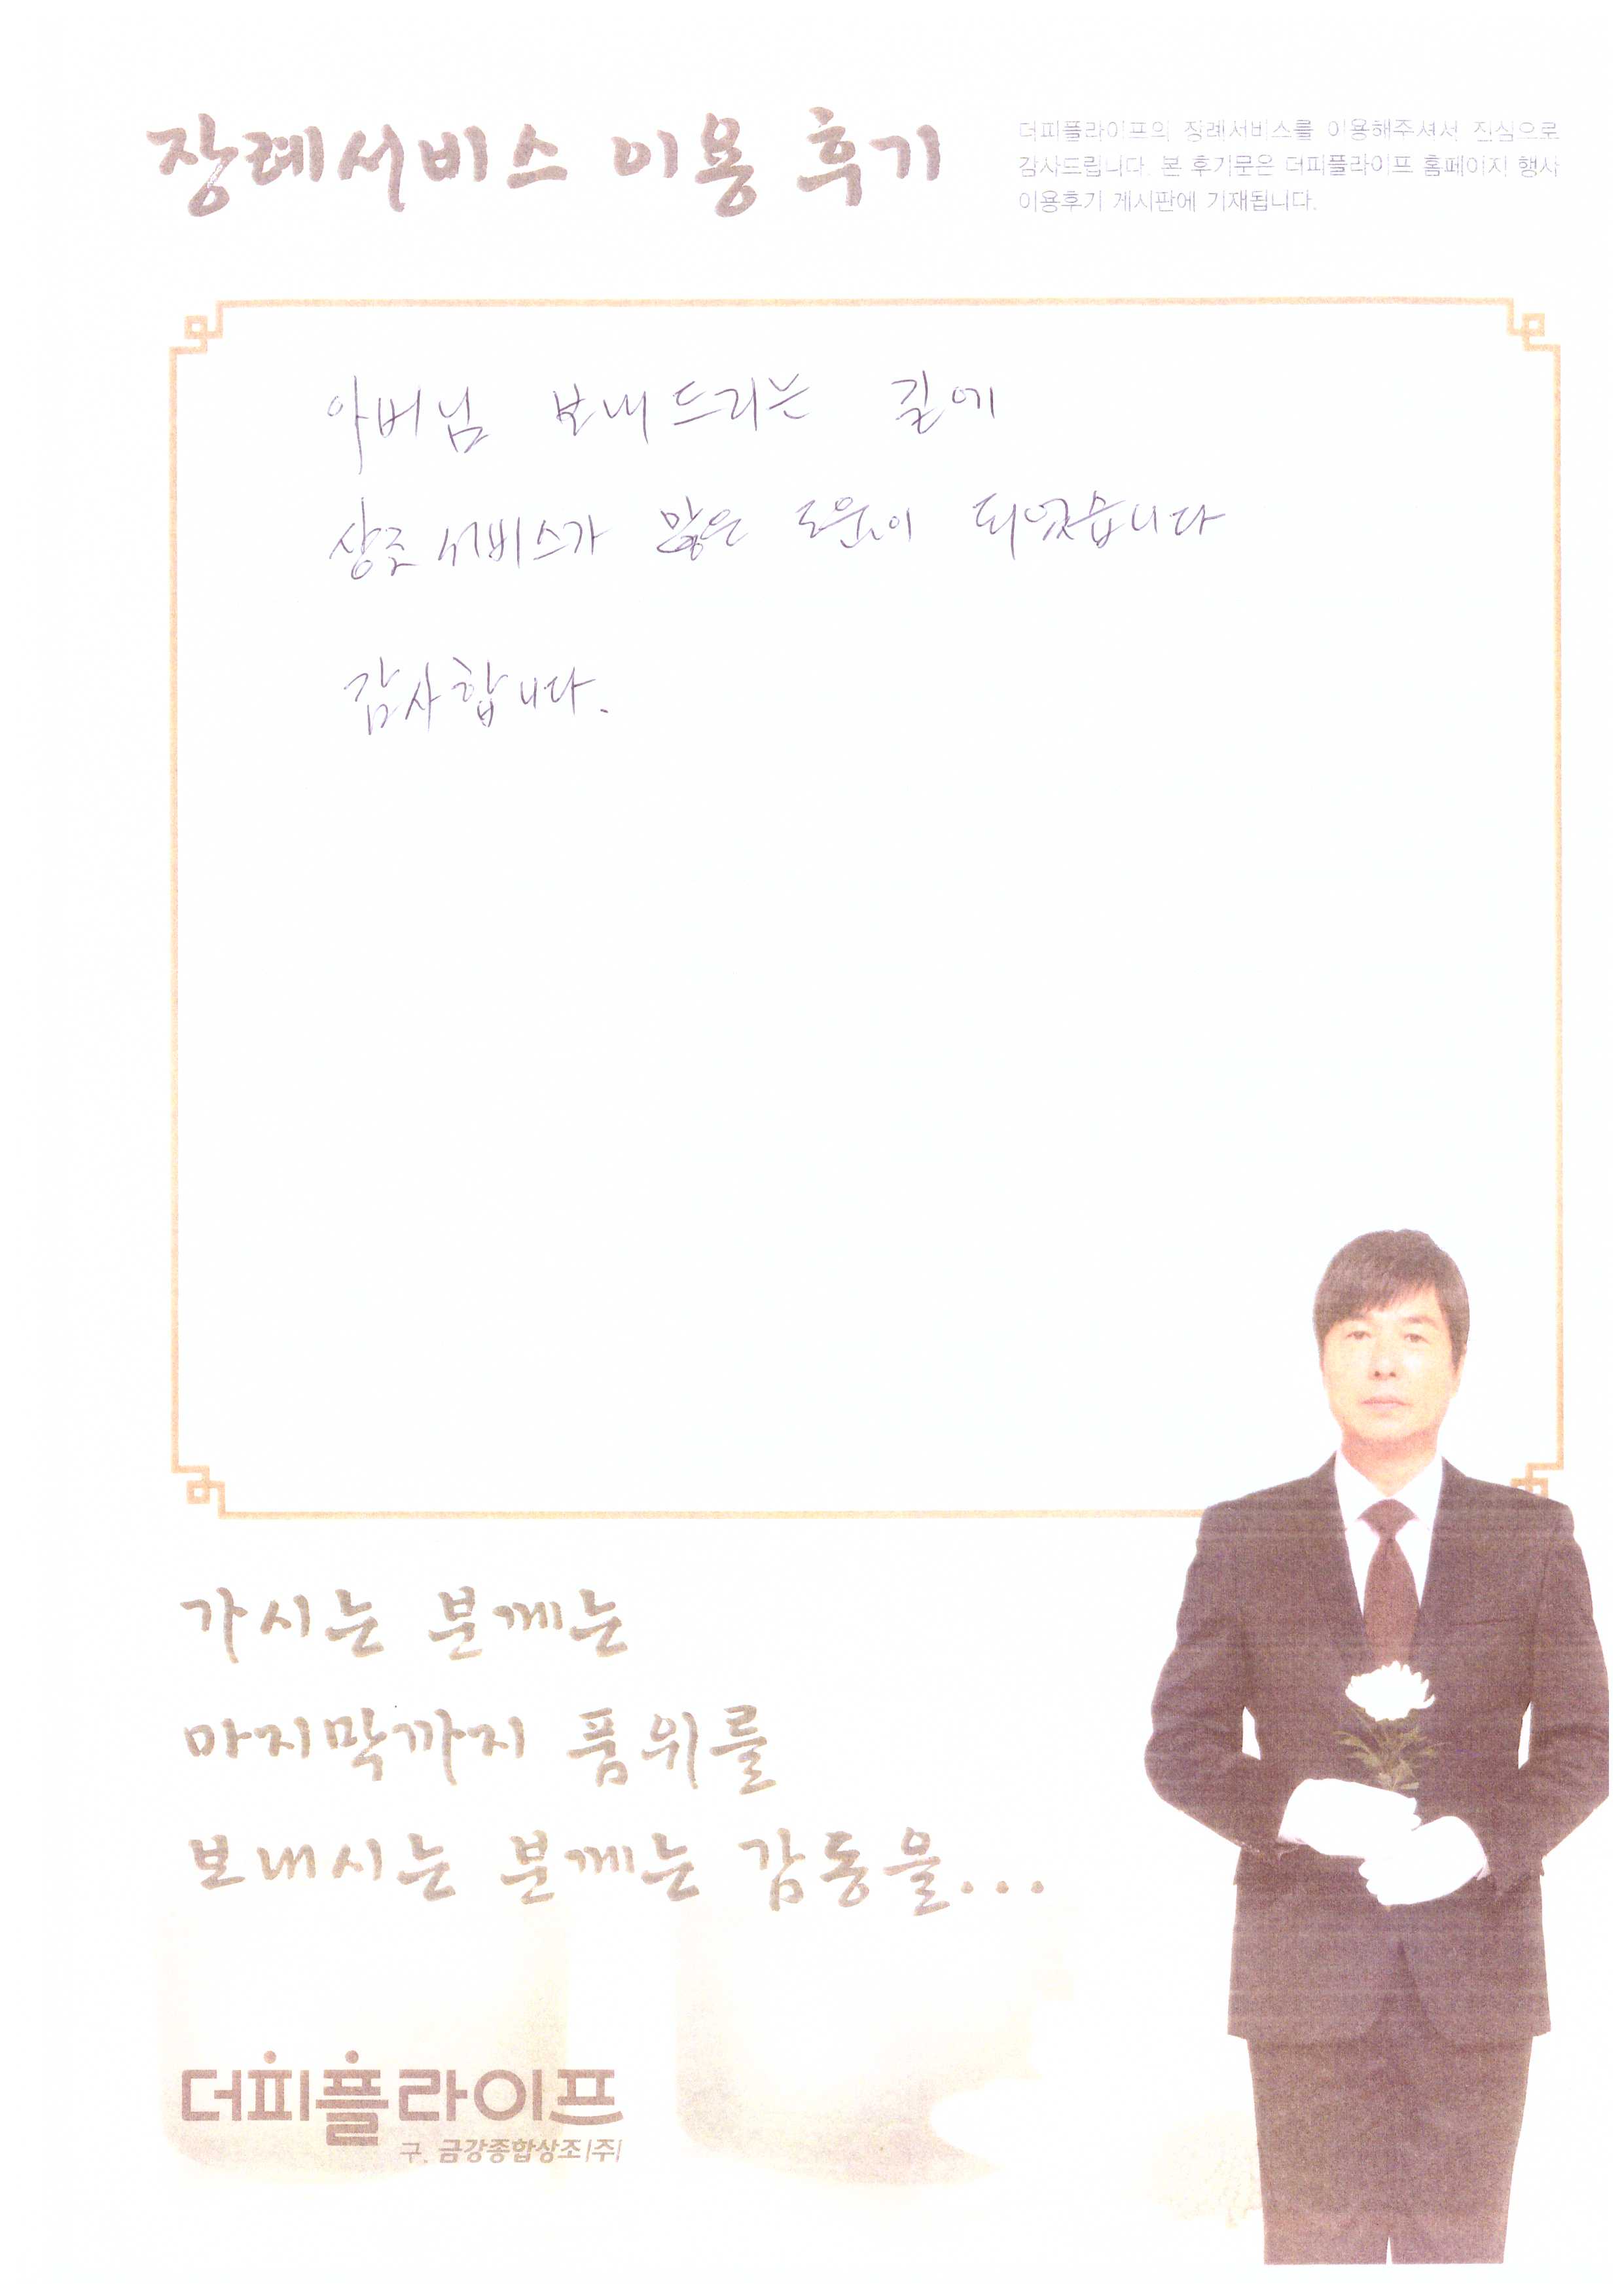 장례서비스 이용 후기
더피플라이프의 장례서비스를 이용해주셔서 진심으로
감사드립니다. 본 후기문은 더피플라이프 홈페이지 행사
이용후기 게시판에 기재됩니다.
아버님 보내드리는 길에
상조서비스가 많은 도움이 되었습니다
감사합니다.
가시는 분께는
마지막까지 품위를
보내시는 분께는 감동을...
더피플라이프
구. 금강종합상조(주)